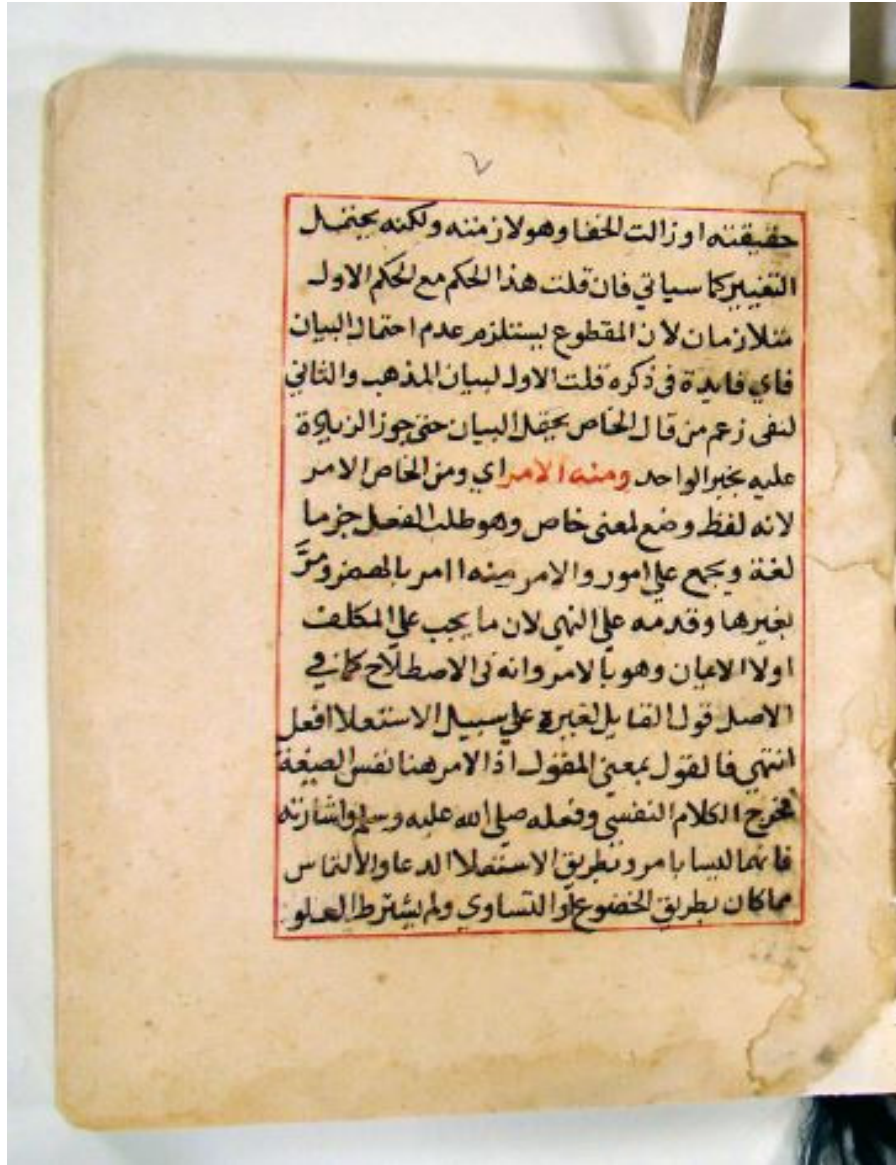 ٧
حقيقته او زالت الخفا وهو لازمته ولكنه يحتمل
التغيير كما سياتي فان قلت هذا الحكم مع الحكم الاول
متلازمان لان المقطوع يستلزم عدم احتمال البيان
فاي فايدة في ذكره قلت الاول لبيان المذهب والثاني
لنفى زعم من قال الخاص يحتمل البيان حتى جوز الزيادة
عليه بخبر الواحد ومنه الامر اي ومن الخاص الامر
لانه لفظ وضع لمعنى خاص وهو طلب الفعل جزما
لغة ويجمع علي امور والامر منه اامر بالهمز ومُرَّ
بغيرها وقدمه علي النهي لان ما يجب علي المكلف
اولا الايمان وهو بالامر وانه في الاصطلاح كما في
الاصل قول القايل لغيره علي سبيل الاستعلا افعل
انتهي فالقول بمعني المقول اذ الامر هنا نفس الصيغة
فخرج الكلام النفسي وفعله صلي الله عليه وسلم واشارته
فانهما ليسا بامر وبطريق الاستعلا الدعا والالتماس
مما كان بطريق الخضوع او التساوي ولم يشترط العلو